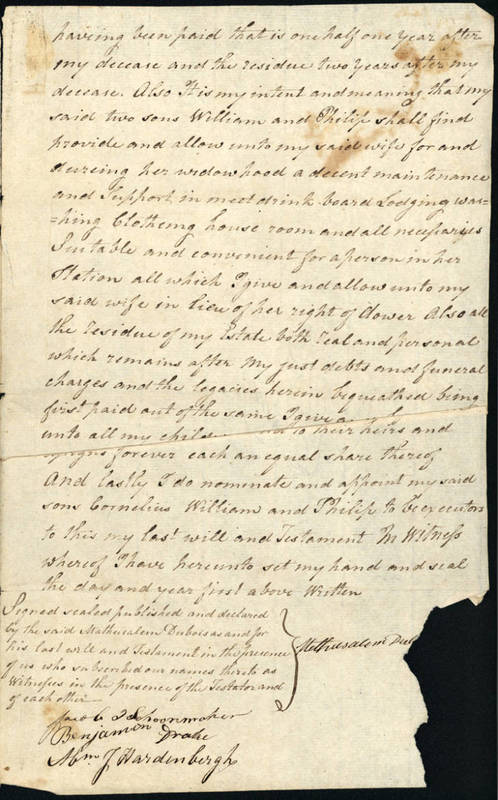 having been paid that is one half one year after
my decease and the residue two years after my
decease. Also It is my intent and meaning that my
said two sons William and Philip shall find
provide and allow unto my said wife for and
dureing her widowhood a decent maintenance
and Support in meet drink board Lodging was=
=hing Clotheing house room and all necessaries
Suitable and convenient for a person in her
Station all which I give and allow unto my
said wife in lieu of her right of dower Also all
the residue of my Estate both real and personal
which remains after my just debts and funeral
charges and the legacies herein bequeathed being
first paid out of the same I give
unto all my child to their heirs and
forever each an equal share thereof
And lastly I do nominate and appoint my said
sons Cornelius William and Philip to be executors
to this my last will and Testament In Witness
whereof I have hereunto set my hand and seal
the day and year first above Written
Signed sealed published and declared
by the said Methusalem Dubois as and for
his last will and Testament in the presence
of us who subscribed our names thereto as
Witnesses in the presence of the Testator and
of each other
Methusalem Dub
Jacob I Schoonmaker
Benjamin Drake
Abm. J Hardenbergh